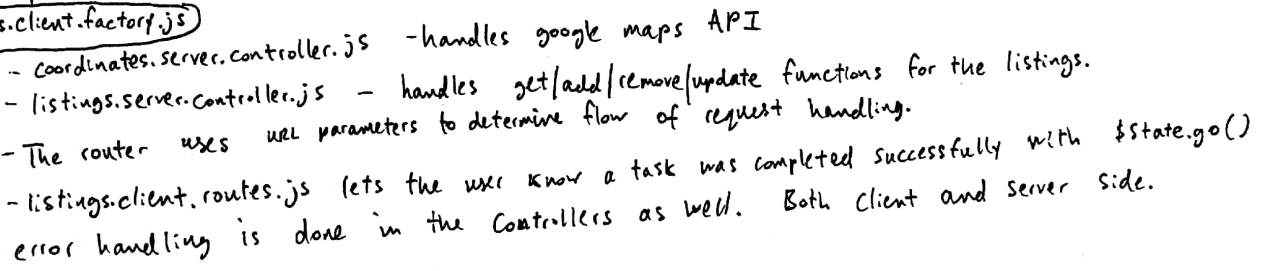 s.client.factory.js
- coordinates.server.controller.js - handles google maps API
- listings.server.controller.js - handles get/add/remove/update functions for the listings.
- The router uses URL parameters to determine flow of request handling.
- listings.client.routes.js lets the user know a task was completed successfully with $state.go()
error handling is done in the controllers as well. Both client and server side.